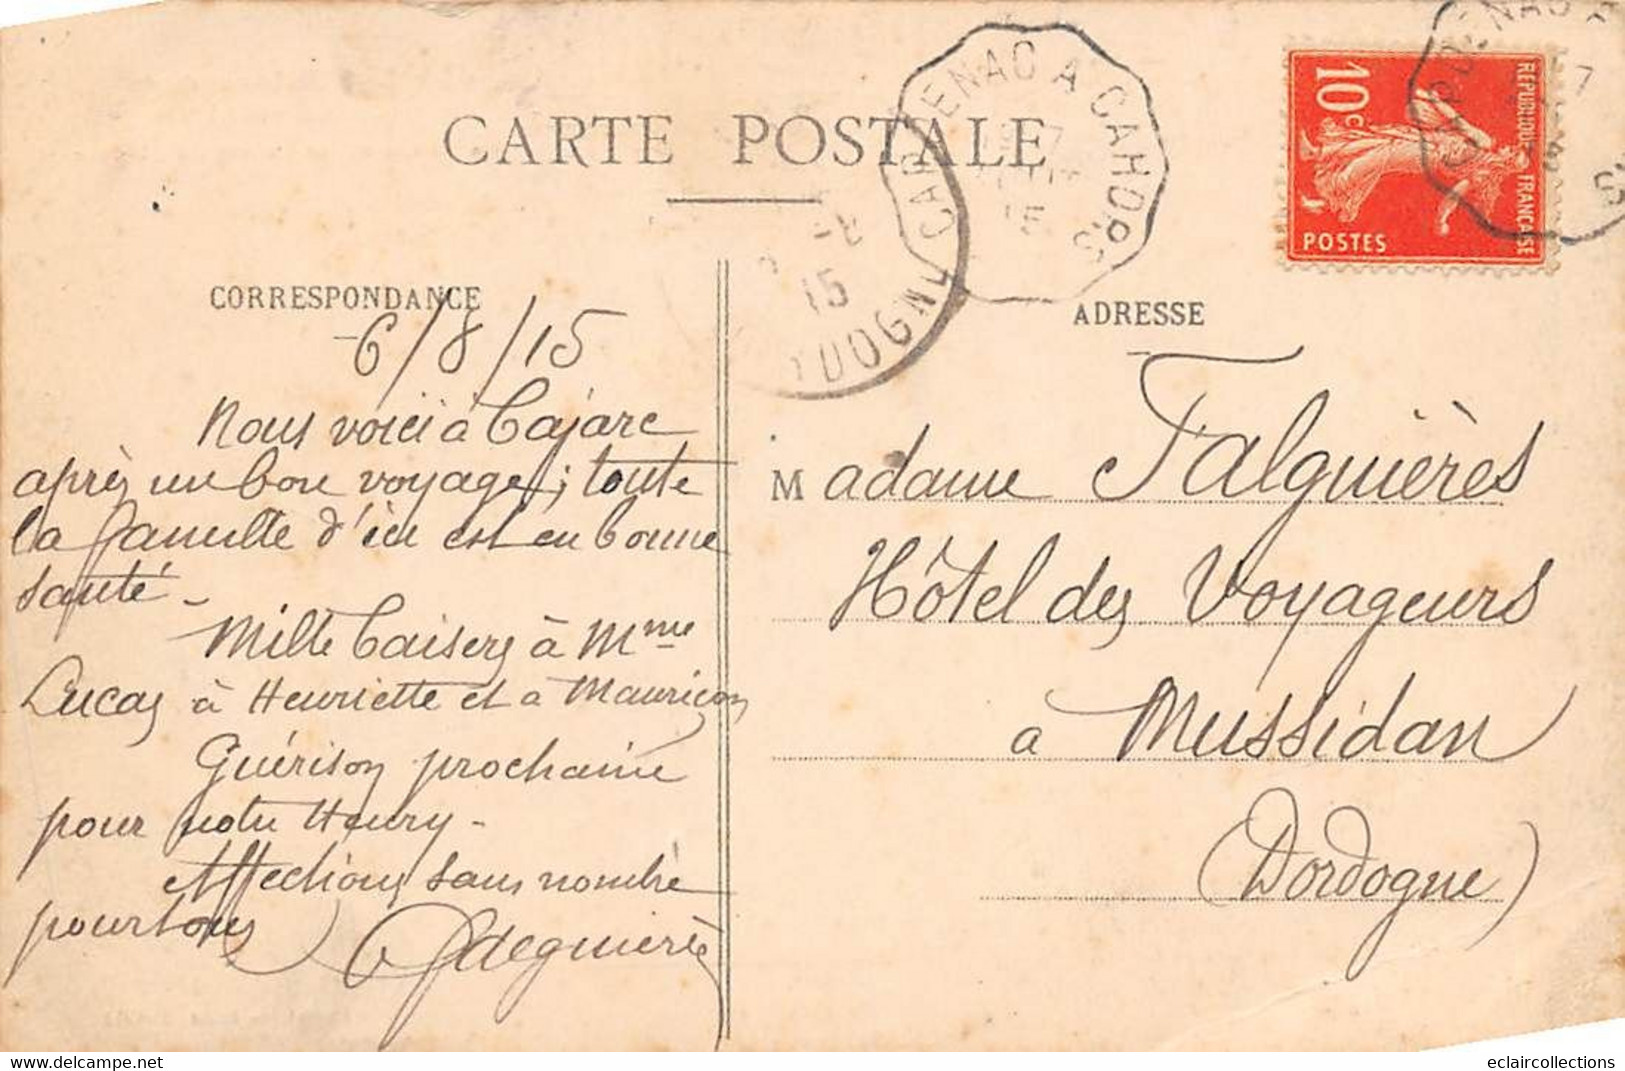 CARTE POSTALE
CAPDENAC A CAHORS
15
15
DOGNE
10c
REPUBLIQUE FRANÇAISE
POSTES
CORRESPONDANCE
6/8/15
Nous voici à Cajarc
après un bon voyage; toute
la famille d'ici est en bonne
santé -
Mille baisers à Mme
Lucas à Henriette et à Mauriçon
Guérison prochaine
pour notre Henry -
Affections sans nombre
pour tous
ADRESSE
Madame Falguières
Hôtel des Voyageurs
à Mussidan
(Dordogne)
eclaircollections